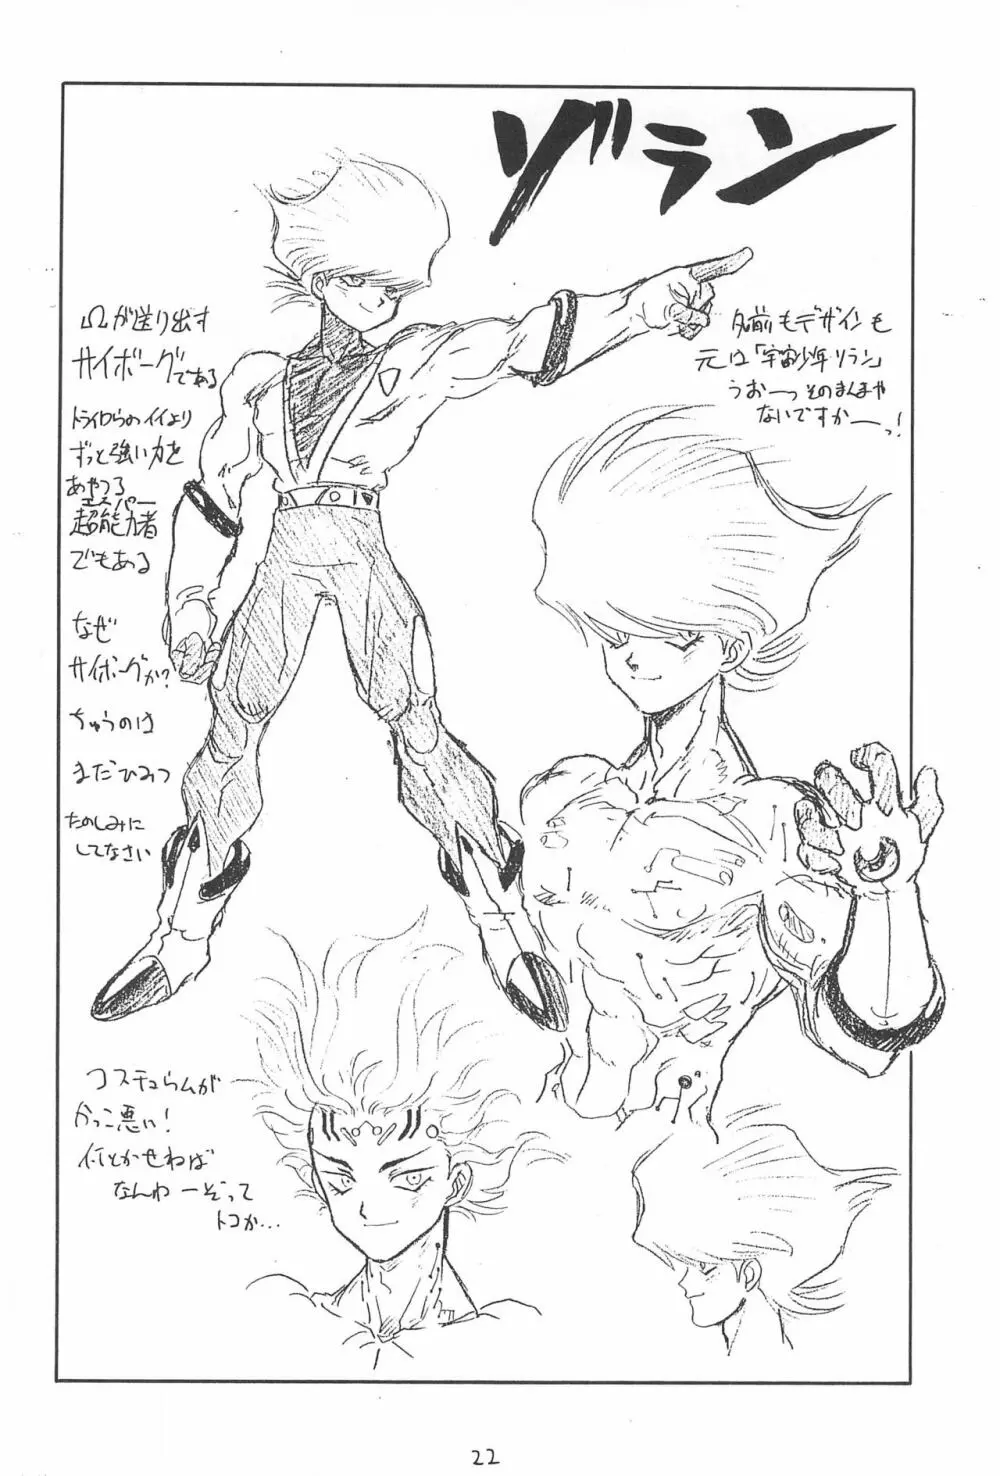 ゾラン
Ωが送り出す
サイボーグである
トライロらのイイより
ずっと強い力を
あやつる
エスパー
超能力者
でもある
なぜ
サイボーグか?
ちゅうのは
まだひみつ
たのしみに
してなさい
名前もデザインも
元は「宇宙少年ソラン」
うおーっそのまんまや
ないですかーっ!
コスチュらムが
かっこ悪い!
何とかせねば
なんわーぞって
トコか…
22